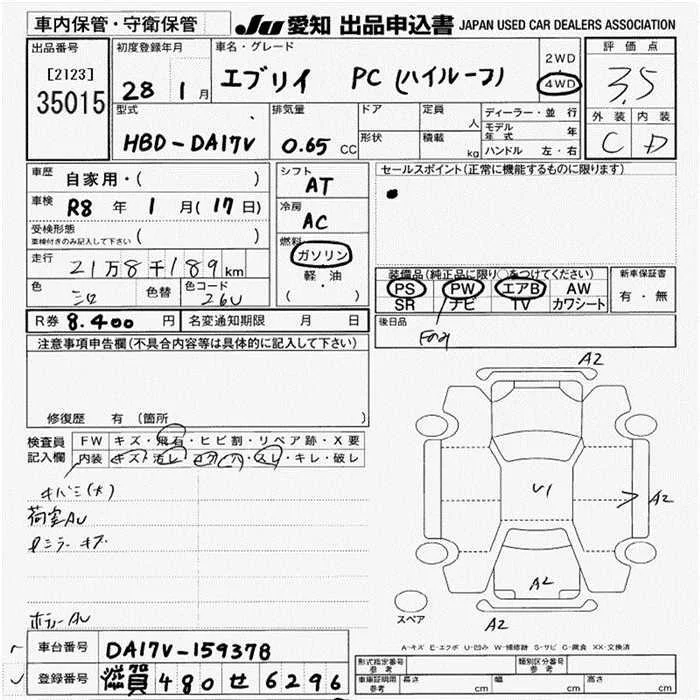 車内保管・守衛保管
JU 愛知 出品申込書 JAPAN USED CAR DEALERS ASSOCIATION
出品番号
[2123]
35015
初度登録年月
28 1月
車名・グレード
エブリイ PC(ハイルーフ)
2WD
4WD
評価点
3.5
外装 内装
C D
型式
HBD-DA17V
排気量
0.65 CC
ドア
形状
定員 人
積載 kg
ディーラー・並行
モデル年式 年
ハンドル 左・右
車歴 自家用・( )
車検 R8年1月(17日)
受検形態
車検付きのみ記入して下さい ( )
走行 21万8千189km
色 色替 色コード
26U
シフト
AT
冷房
AC
燃料
ガソリン
軽・油
( )
セールスポイント(正常に機能するものに限ります)
装備品(純正品に限り○をつけてください)
PS PW エアB AW
SR ナビ TV カワシート
新車保証書
有・無
後日品
R券 8.400円 名変通知期限 月 日
注意事項申告欄(不具合内容等は具体的に記入して下さい)
修復歴 有(箇所 )
検査員記入欄
FW キズ・飛石・ヒビ割・リペア跡・X要
内装 キズ・汚レ・コゲ・穴・スレ・キレ・破レ
キバミ(大)
荷室AU
ℓミラーキズ
ボデーAU
A2
U1
A2
A2
A2
スペア
A-キズ E-エクボ U-凹み W-補修跡 S-サビ C-腐食 XX-交換済
車台番号 DA17V-159378
登録番号 滋賀480せ6296
形式指定番号 参考
類別区分番号 参考
車庫証明用 参考 長さ cm 幅 cm 高さ cm